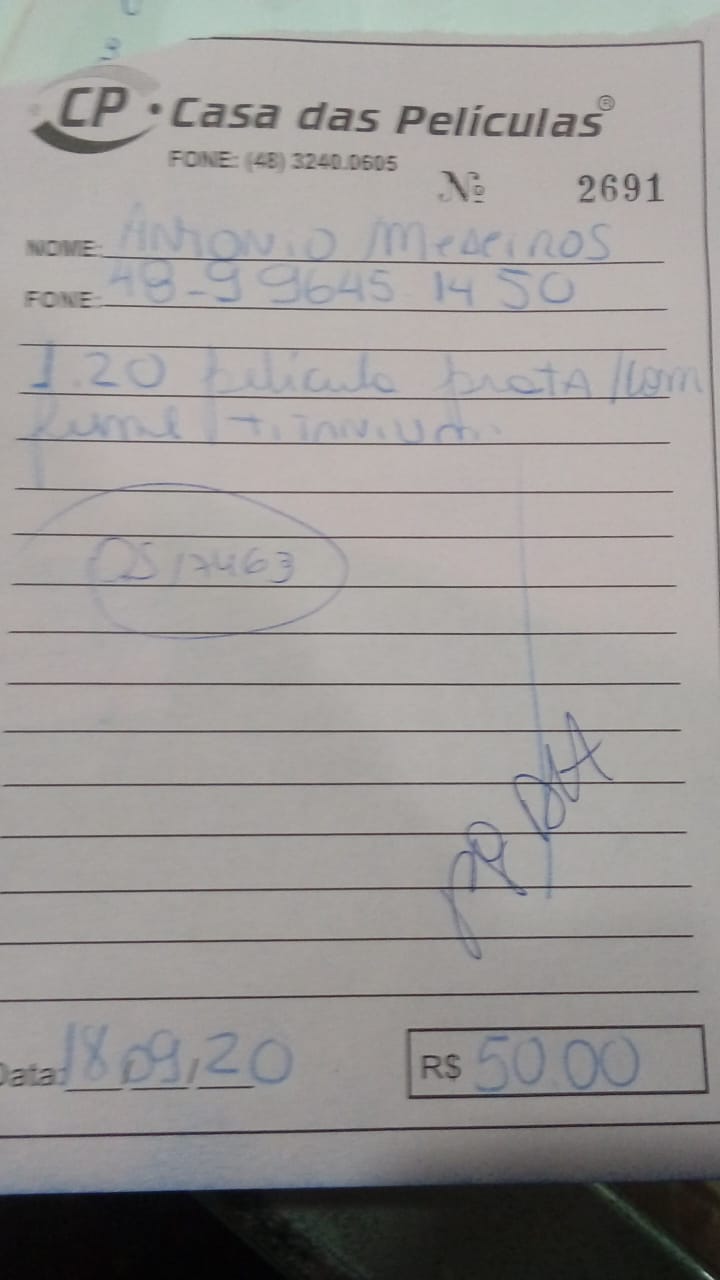 CP • Casa das Películas®
FONE: (48) 3240.0605
Nº 2691
NOME: ANTONIO MEDEIROS
FONE: 48-99645 1450
1.20 película prata / com
OS 17463
Data: 18 09, 20
R$ 50.00